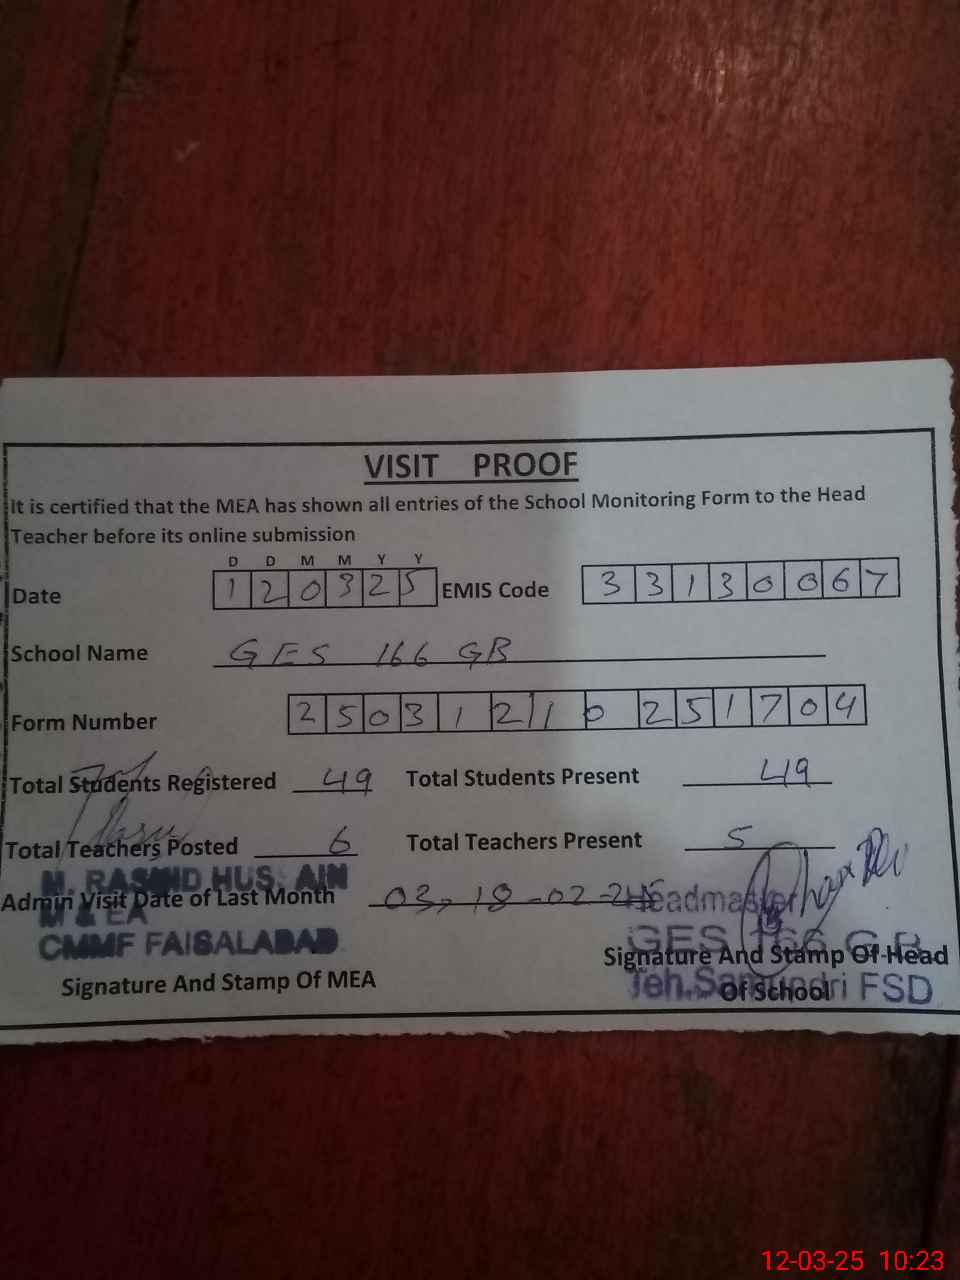 VISIT PROOF
It is certified that the MEA has shown all entries of the School Monitoring Form to the Head
Teacher before its online submission
D D M M Y Y
Date 1 2 0 3 2 5 EMIS Code 3 3 1 3 0 0 6 7
School Name GES 166 GB
Form Number 2 5 0 3 1 2 1 0 2 5 1 7 0 4
Total Students Registered 49 Total Students Present 49
Total Teachers Posted 6 Total Teachers Present 5
M. RASHID HUSSAIN
Admin Visit Date of Last Month 03, 18-02-25
M & EA
CMMF FAISALABAD
Signature And Stamp Of MEA
Headmaster
GES 166 G.B
Signature And Stamp Of Head
Of School
Teh. Samundri FSD
12-03-25 10:23